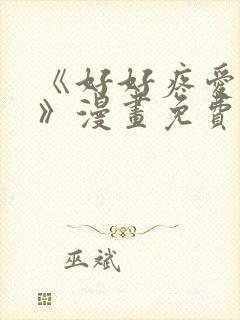 《好好疼愛
》漫畫免費
巫斌